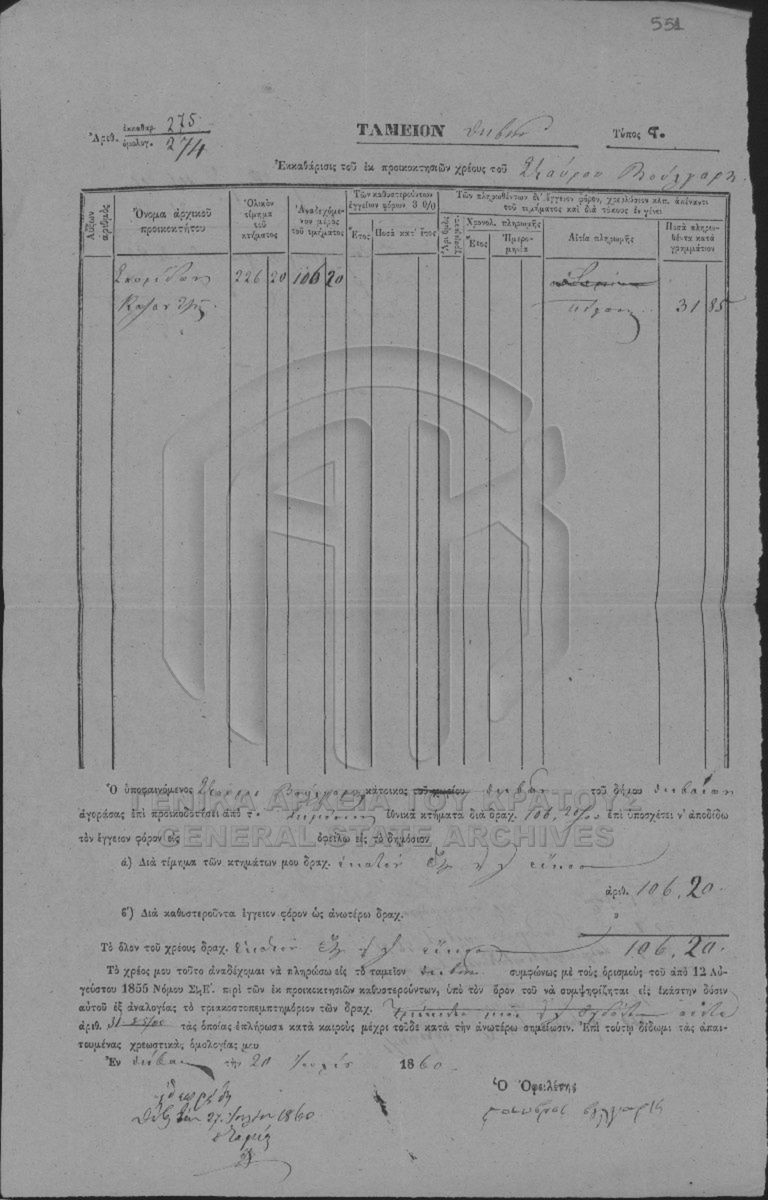 551
Ἀριθ. ἐκκαθαρ. 275
ὁμολογ. 274
ΤΑΜΕΙΟΝ Θηβῶν
Τύπος
Ἐκκαθάρισις τοῦ ἐκ προικοκτησιῶν χρέους τοῦ Σταύρου Βούλγαρη.
Αὔξων ἀριθμός
Ὄνομα ἀρχικοῦ προικοκτήτου
Ὁλικὸν τίμημα τοῦ κτήματος
Ἀναδεχόμενον μέρος τοῦ τιμήματος
Τῶν καθυστερούντων ἐγγείων φόρων 3 0/0
Ἔτος
Ποσὰ κατ' ἔτος
Τῶν πληρωθέντων δι' ἔγγειον φόρον, χρεωλύσιον κλπ. ἀπέναντι τοῦ τιμήματος καὶ διὰ τόκους ἐν γένει
Ἀριθμὸς γραμματ.
Χρονολ. πληρωμῆς
Ἔτος
Ἡμερομηνία
Αἰτία πληρωμῆς
Ποσὰ πληρωθέντα κατὰ γραμμάτιον
226 20 106 20
31 85
ΓΕΝΙΚΑ ΑΡΧΕΙΑ ΤΟΥ ΚΡΑΤΟΥΣ
GENERAL STATE ARCHIVES
Ὁ ὑποφαινόμενος Σταῦρος Βούλγαρης κάτοικος τοῦ χωρίου Θηβῶν τοῦ δήμου Θηβαίων
ἀγοράσας ἐπὶ προικοδοτήσει ἀπὸ ἐθνικὰ κτήματα διὰ δραχ. 106, 20/00 ἐπὶ ὑποσχέσει ν' ἀποδίδω
τὸν ἔγγειον φόρον εἰς ὀφείλω εἰς τὸ δημόσιον
ά.) Διὰ τίμημα τῶν κτημάτων μου δραχ. ἑκατὸν ἓξ εἴκοσι
ἀριθ. 106,20.
β΄) Διὰ καθυστεροῦντα ἔγγειον φόρον ὡς ἀνωτέρω δραχ.
Τὸ ὅλον τοῦ χρέους δραχ. ἑκατὸν ἓξ εἴκοσι 106,20.
Τὸ χρέος μου τοῦτο ἀναδέχομαι νὰ πληρώσω εἰς τὸ ταμεῖον Θηβῶν συμφώνως μὲ τοὺς ὁρισμοὺς τοῦ ἀπὸ 12 Αὐ-
γούστου 1855 Νόμου περὶ τῶν ἐκ προικοκτησιῶν καθυστερούντων, ὑπὸ τὸν ὅρον τοῦ νὰ συμψηφίζηται εἰς ἑκάστην δόσιν
αὐτοῦ ἐξ ἀναλογίας τὸ τριακοστοπεμπτημόριον τῶν δραχ. τριάκοντα μιᾶς ὀγδόντα πέντε
ἀριθ. 31 85/00 τὰς ὁποίας ἐπλήρωσα κατὰ καιροὺς μέχρι τοῦδε κατὰ τὴν ἀνωτέρω σημείωσιν. Ἐπὶ τούτῳ δίδωμι τὰς ἀπαι-
τουμένας χρεωστικὰς ὁμολογίας μου
Ἐν Θήβαις τῇ 20 Ἰουλίου 1860.
Ὁ Ὀφειλέτης
Ἐθεωρήθη
27 Ἰουλίου 1860